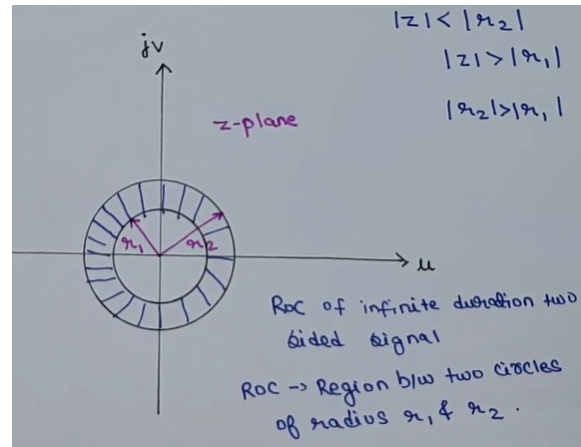 |z| < |r2|
|z| > |r1|
|r2| > |r1|
jv
z-plane
r1
r2
u
ROC of infinite duration two
sided signal
ROC → Region b/w two circles
of radius r1 & r2.